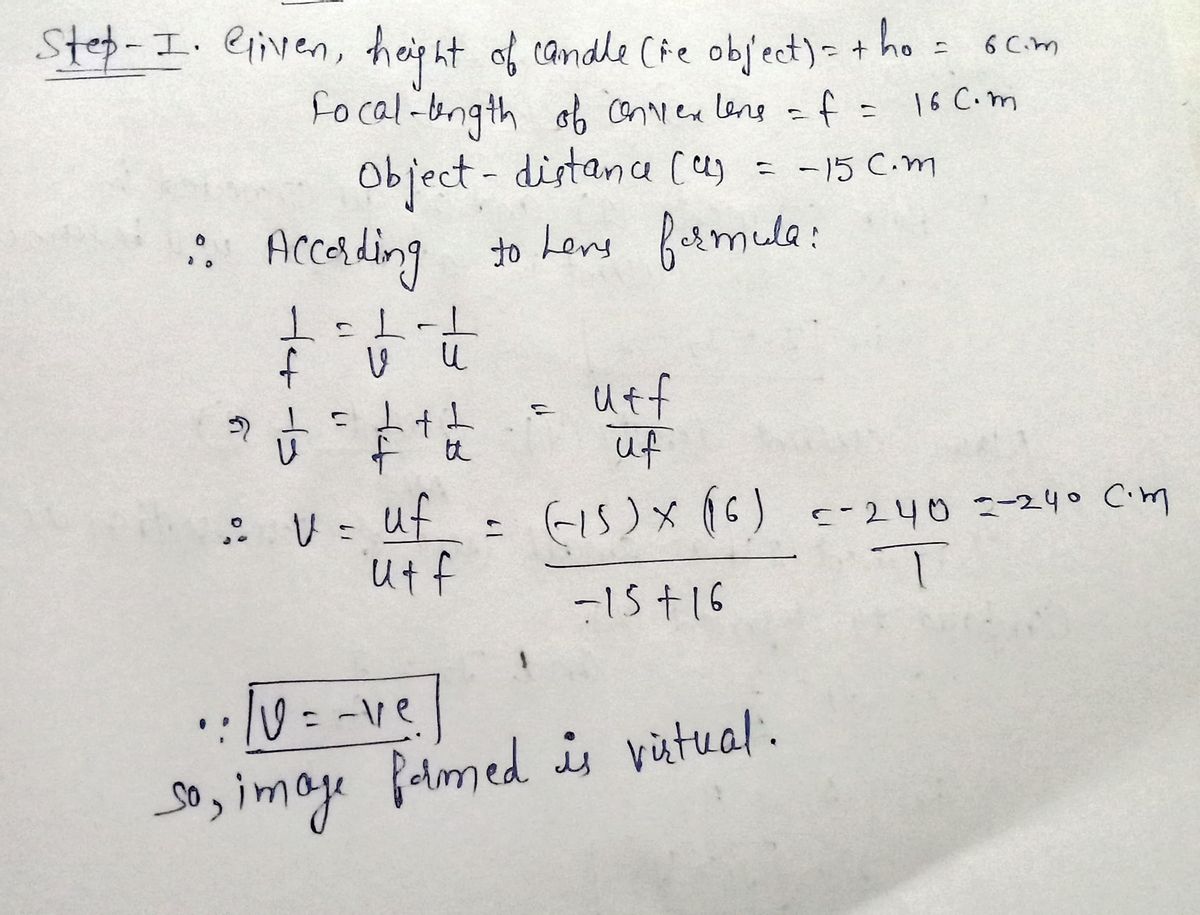 Step-I. Given, height of candle (ie object) = + ho = 6 C.m
Focal-length of convex lens = f = 16 C.m
Object-distance (u) = -15 C.m
∴ According to Lens formula:
1/f = 1/v - 1/u
⇒ 1/v = 1/f + 1/u = u+f/uf
∴ v = uf/u+f = (-15) × (16)/-15+16 = -240/1 = -240 C.m
∵ v = -ve.
so, image formed is virtual.